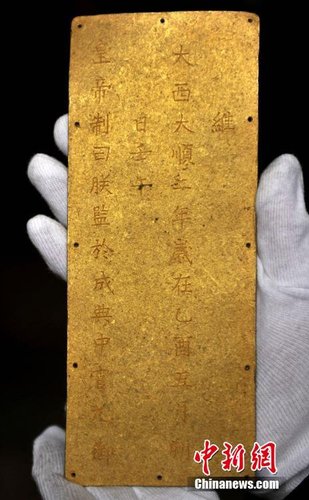 維
大西大順二年歲在乙酉五月
日壬午
皇帝制曰朕監於成典中宮九御
中新网
Chinanews.com